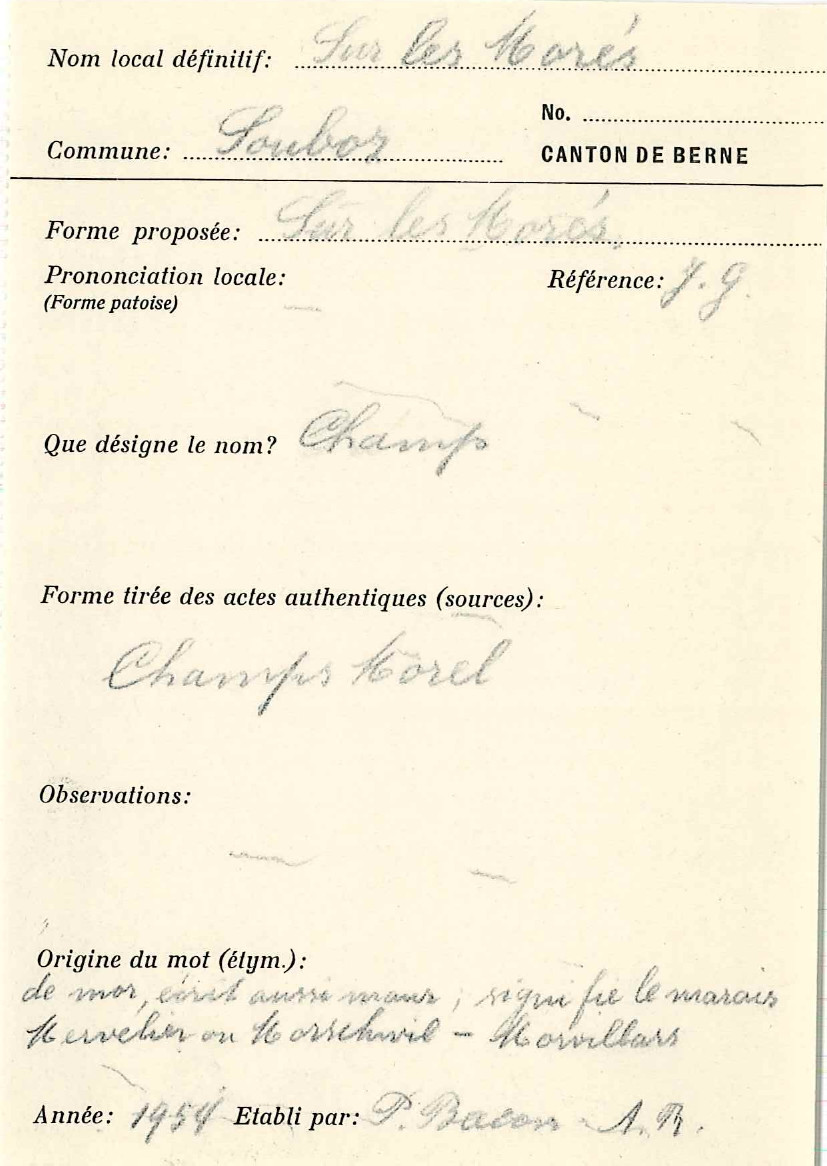 Nom local définitif: Sur les Morés
No.
Commune: Souboz
CANTON DE BERNE
Forme proposée: Sur les Morés
Prononciation locale:
Référence: J. G.
(Forme patoise)
Que désigne le nom? Champs
Forme tirée des actes authentiques (sources):
Champs Morel
Observations:
Origine du mot (étym.):
de mor, écrit aussi maur; signifie le marais
Mervelier ou Morschwil - Morvillars
Année: 1954 Etabli par: P. Bacon - A. R.